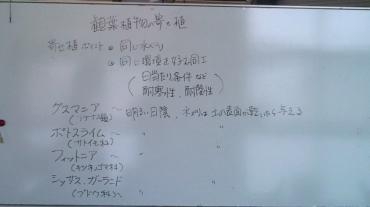 観葉植物の寄せ植
寄せ植ポイント • 同じ水やり
• 同じ環境を好む同士
(日当たり条件 など
耐寒性、耐陰性)
グズマニア 〜 明るい日陰、水やりは土の表面の乾いたら与える
(パイナップル科)
ポトスライム 〜 〃 〃
(サトイモ科)
フィットニア 〜 〃 〃
(キツネノマゴ科)
シッサス、ガーランド
(ブドウ科) 〜 〃 〃